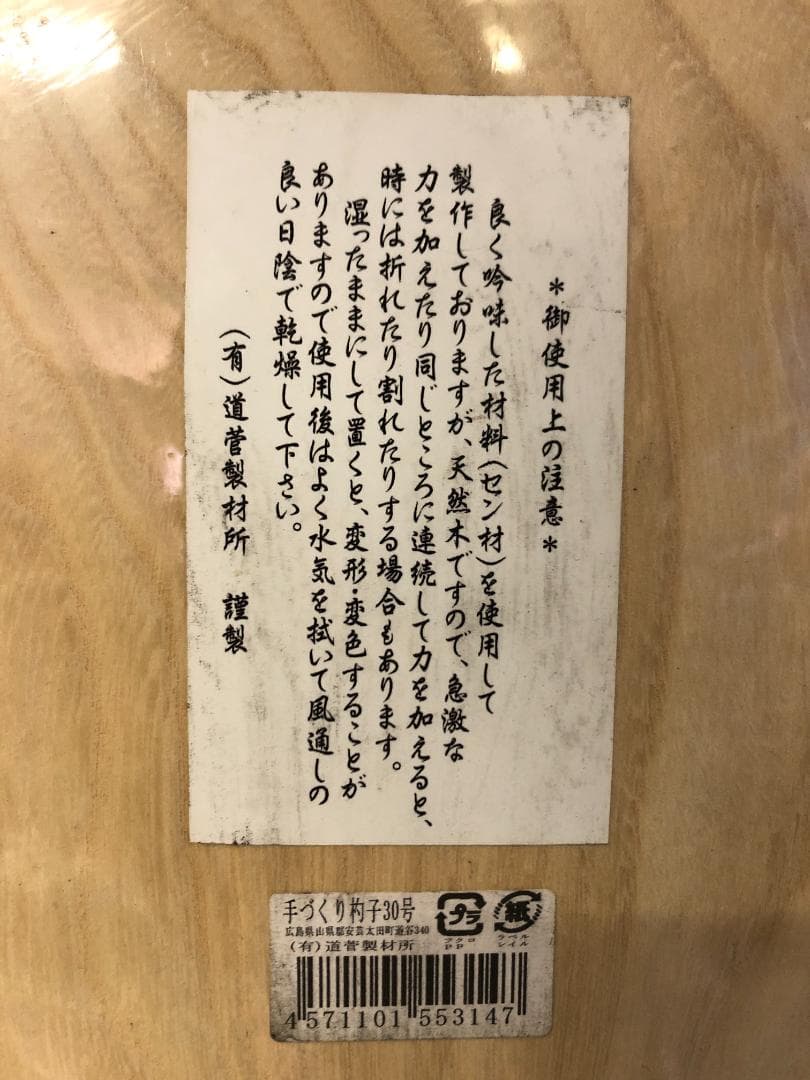 ＊御使用上の注意＊
良く吟味した材料(セン材)を使用して
製作しておりますが、天然木ですので、急激な
力を加えたり同じところに連続して力を加えると、
時には折れたり割れたりする場合もあります。
湿ったままにして置くと、変形・変色することが
ありますので使用後はよく水気を拭いて風通しの
良い日陰で乾燥して下さい。
(有)道菅製材所　謹製
手づくり杓子30号
広島県山県郡安芸太田町遊谷340
(有)道菅製材所
プラ
フクロ
PP
紙
ラベル
シイル
4 571101 553147